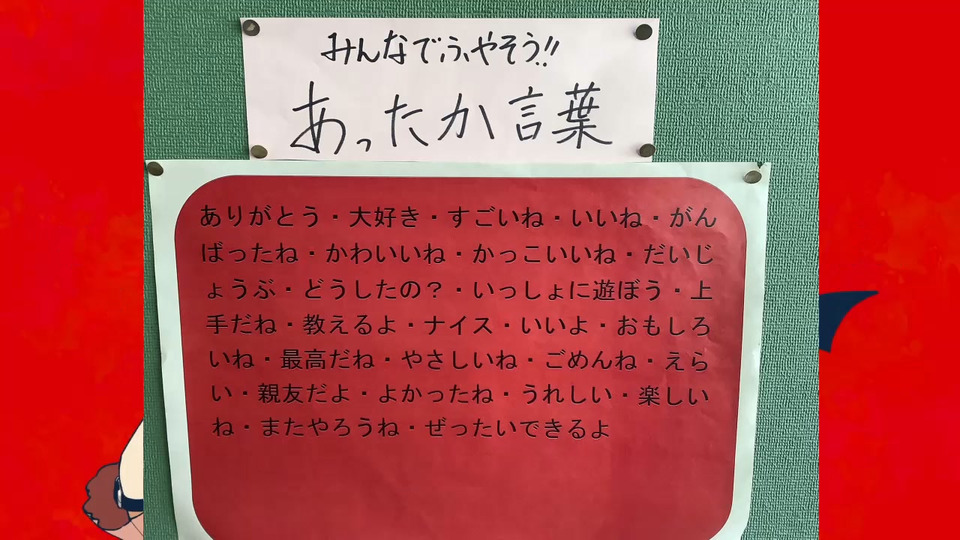 みんなでふやそう!!
あったか言葉
ありがとう・大好き・すごいね・いいね・がん
ばったね・かわいいね・かっこいいね・だいじ
ょうぶ・どうしたの？・いっしょに遊ぼう・上
手だね・教えるよ・ナイス・いいよ・おもしろ
いね・最高だね・やさしいね・ごめんね・えら
い・親友だよ・よかったね・うれしい・楽しい
ね・またやろうね・ぜったいできるよ